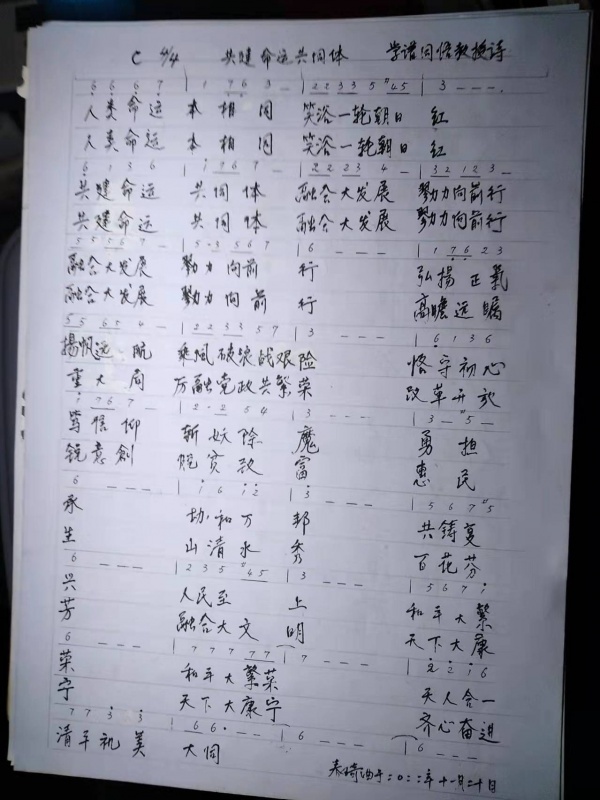 C 4/4 共建命运共同体 学语同悟教授诗
6 6 6 7 | 1 7 6 3 - | 2 2 3 3 5 #4 5 | 3 - - -
人类命运 本相同 笑浴一轮朝日 红
人类命运 本相同 笑浴一轮朝日 红
6 1 3 6 | 1 7 6 7 - | 2 2 2 3 4 - | 3 2 1 2 3 -
共建命运 共同体 融合大发展 勠力向前行
共建命运 共同体 融合大发展 勠力向前行
5 5 5 6 7 - | 5 · 3 5 6 7 | 6 - - - | 1 7 6 2 3
融合大发展 勠力向前 行 弘揚正氣
融合大发展 勠力向前 行 高瞻远瞩
5 5 6 5 4 - | 2 2 3 3 5 7 | 3 - - - | 6 1 3 6
揚帆远航 乘风破浪战艰险 恪守初心
重大局 历融党政共繁荣 改革开放
1 7 6 7 - | 2 · 2 5 4 | 3 - - - | 3 - #5 -
笃信仰 斩妖除 魔 勇担
锐意創 脱贫致 富 惠民
6 - - - | 1 6 1 2 | 3 - - - | 5 6 7 #5
承 协和万 邦 共铸复
生 山清水 秀 百花芬
6 - - - | 2 3 5 #4 5 | 3 - - - | 5 6 7 1
兴 人民至 上 和平大繁
芳 融合大文 明 天下大康
6 - - - | 7 7 7 7 7 | 7 - - - | 2 2 1 6
荣 和平大繁荣 天人合一
宁 天下大康宁 齐心奋进
7 7 3 3 | 6 6 · - - | 6 - - - | 6 - - -
清平祝美 大同
春琦曲于二〇二二年十一月二十日